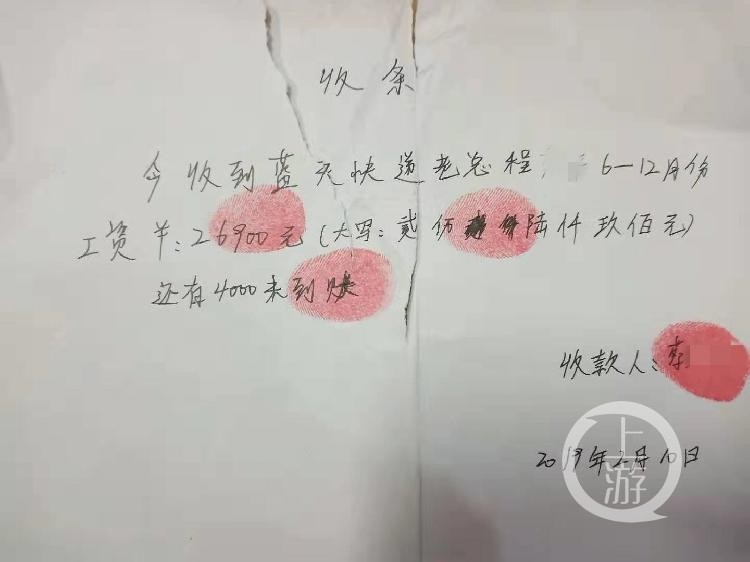 收条
今收到蓝天快递老总程 6—12月份
工资半:26900元(大写:贰仟陆仟玖佰元)
还有4000未到账
收款人:李
2019年2月10日
上游